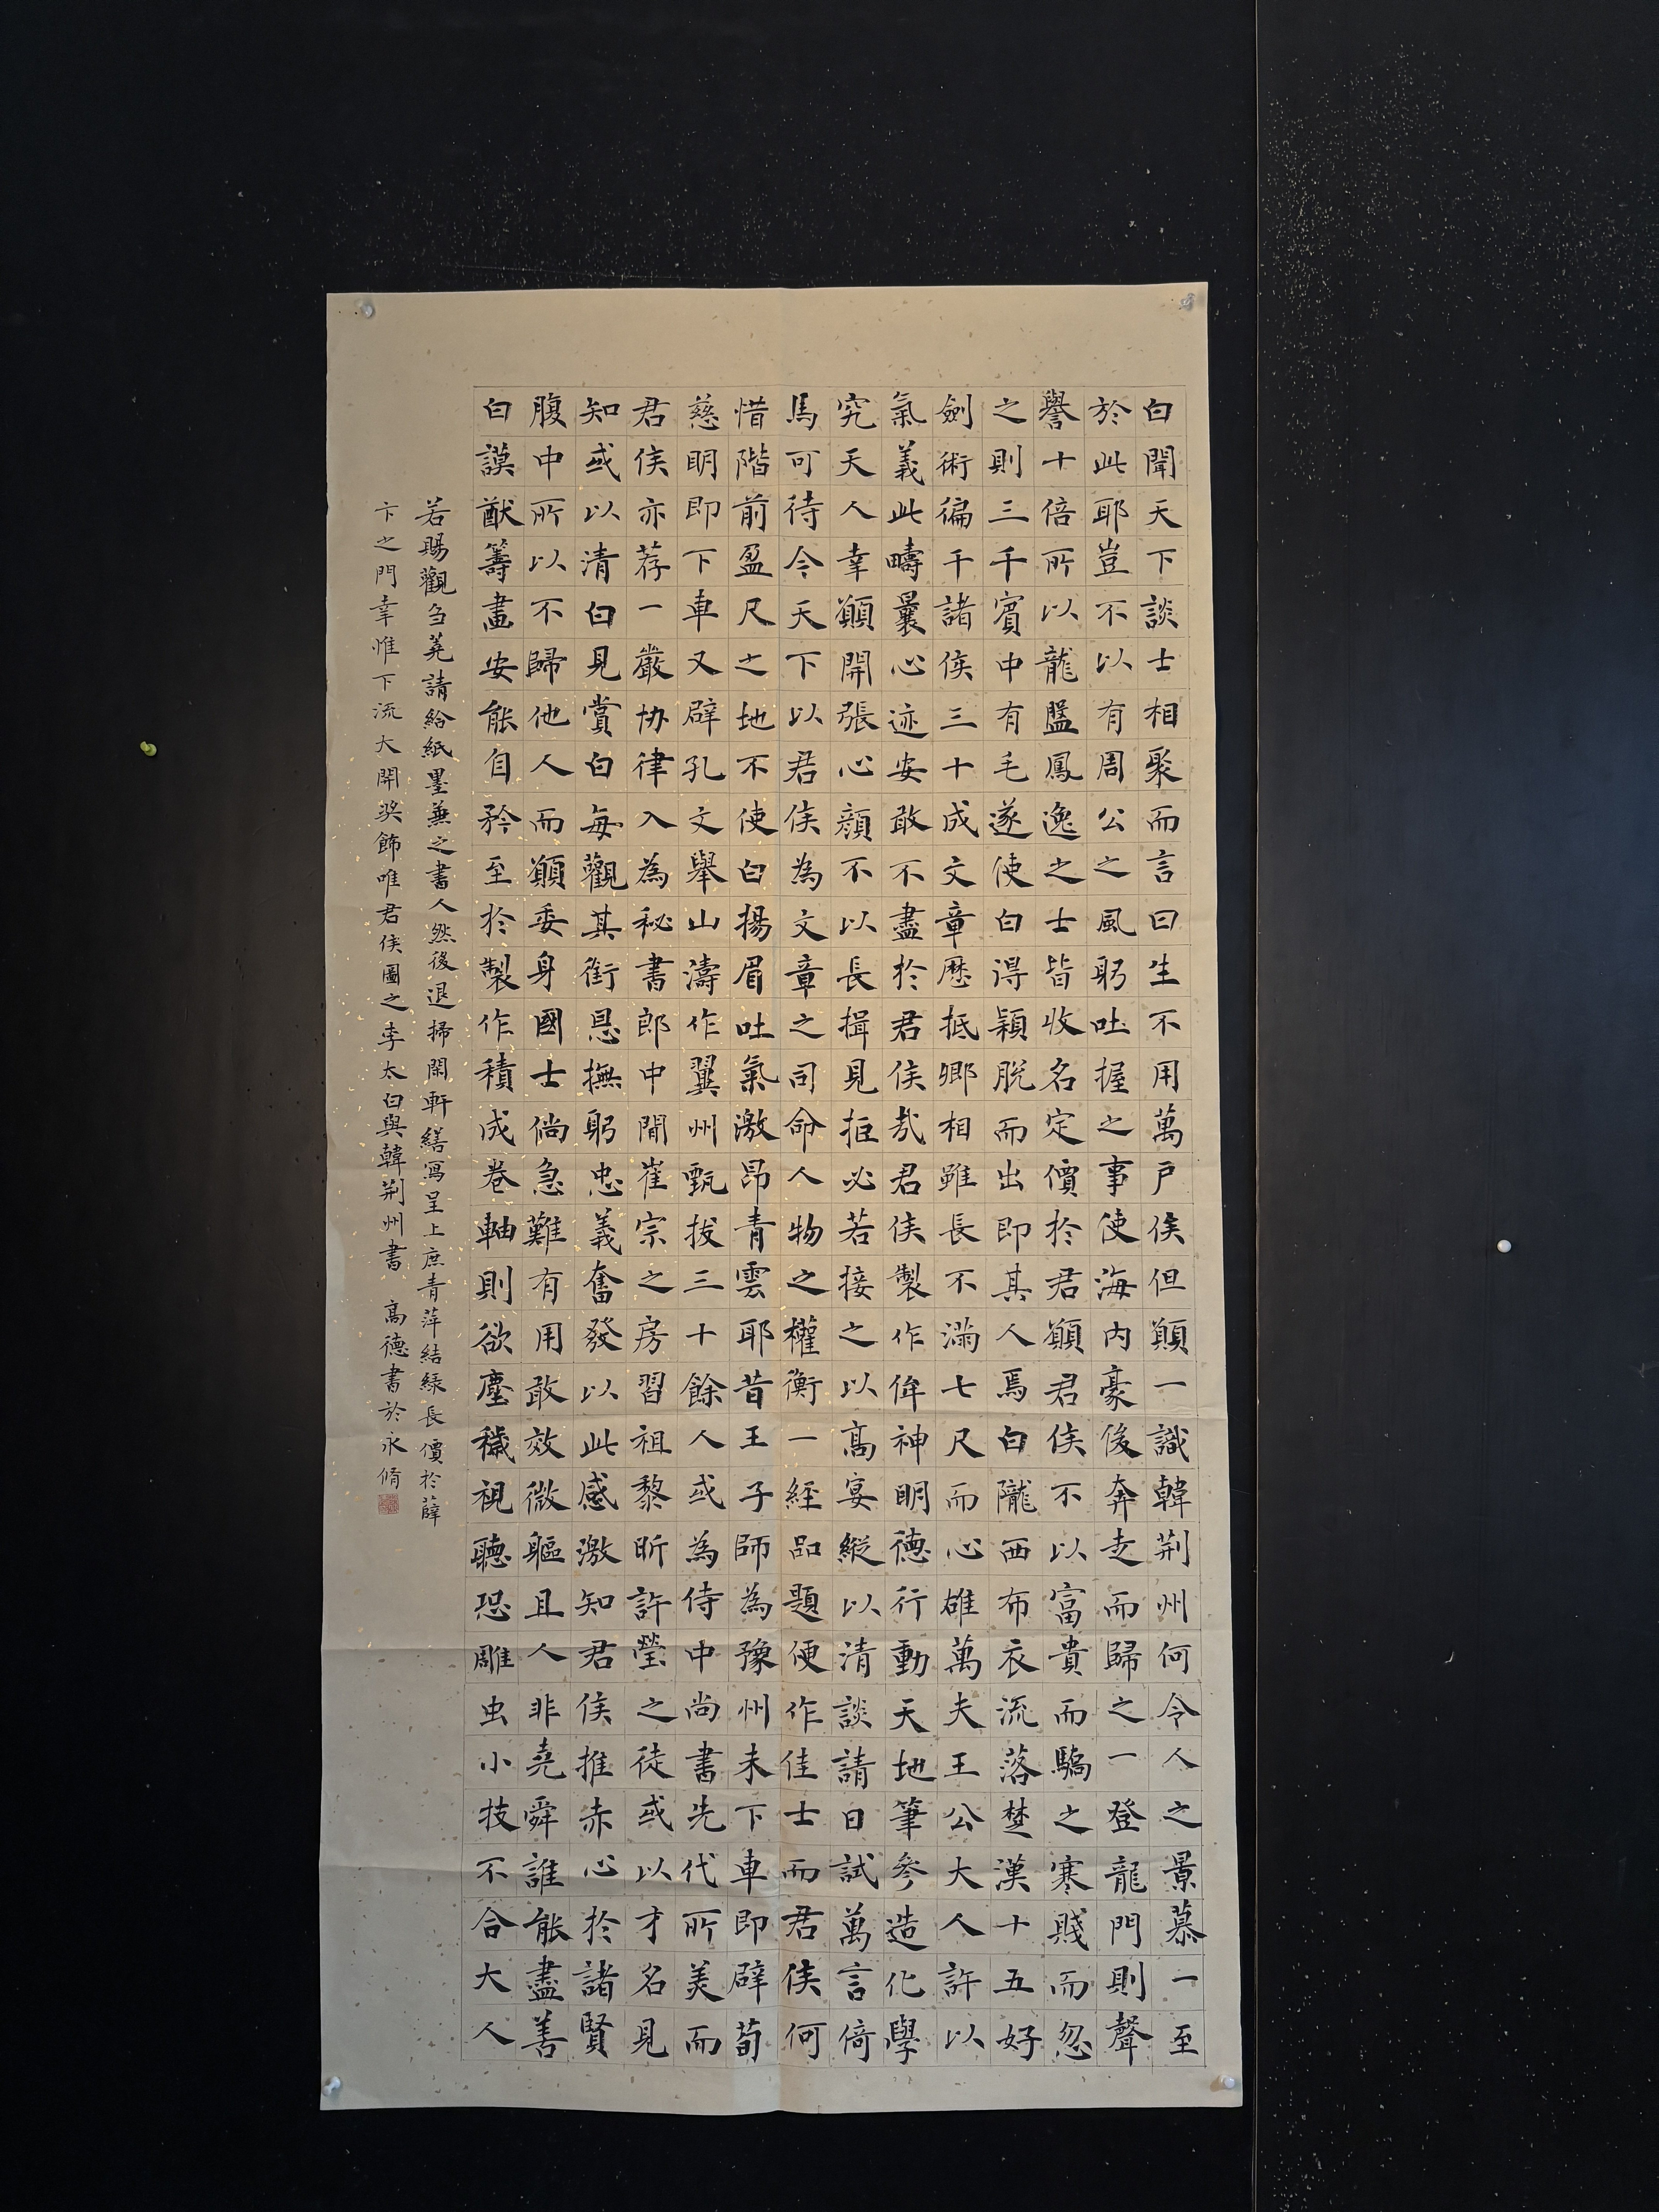 白聞天下談士相聚而言曰生不用萬戶侯但願一識韓荆州何令人之景慕一至
於此耶豈不以有周公之風躬吐握之事使海內豪俊奔走而歸之一登龍門則聲
譽十倍所以龍盤鳳逸之士皆收名定價於君願君侯不以富貴而驕之寒賤而忽
之則三千賓中有毛遂使白得穎脫而出即其人焉白隴西布衣流落楚漢十五好
劍術徧干諸侯三十成文章歷抵卿相雖長不滿七尺而心雄萬夫王公大人許以
氣義此疇曩心迹安敢不盡於君侯哉君侯製作侔神明德行動天地筆參造化學
究天人幸願開張心顏不以長揖見拒必若接之以高宴縱以清談請日試萬言倚
馬可待今天下以君侯為文章之司命人物之權衡一經品題便作佳士而君侯何
惜階前盈尺之地不使白揚眉吐氣激昂青雲耶昔王子師為豫州未下車即辟荀
慈明即下車又辟孔文舉山濤作翼州甄拔三十餘人或為侍中尚書先代所美而
君侯亦荐一嚴協律入為秘書郎中間崔宗之房習祖黎昕許瑩之徒或以才名見
知或以清白見賞白每觀其銜恩撫躬忠義奮發以此感激知君侯推赤心於諸賢
腹中所以不歸他人而願委身國士倘急難有用敢效微軀且人非堯舜誰能盡善
白謨猷籌畫安能自矜至於製作積成卷軸則欲塵穢視聽恐雕虫小技不合大人
若賜觀芻蕘請給紙墨兼之書人然後退掃閑軒繕寫呈上庶青萍結綠長價於薛
卞之門幸惟下流大開奖飾唯君侯圖之李太白與韓荆州書 高德書於永脩